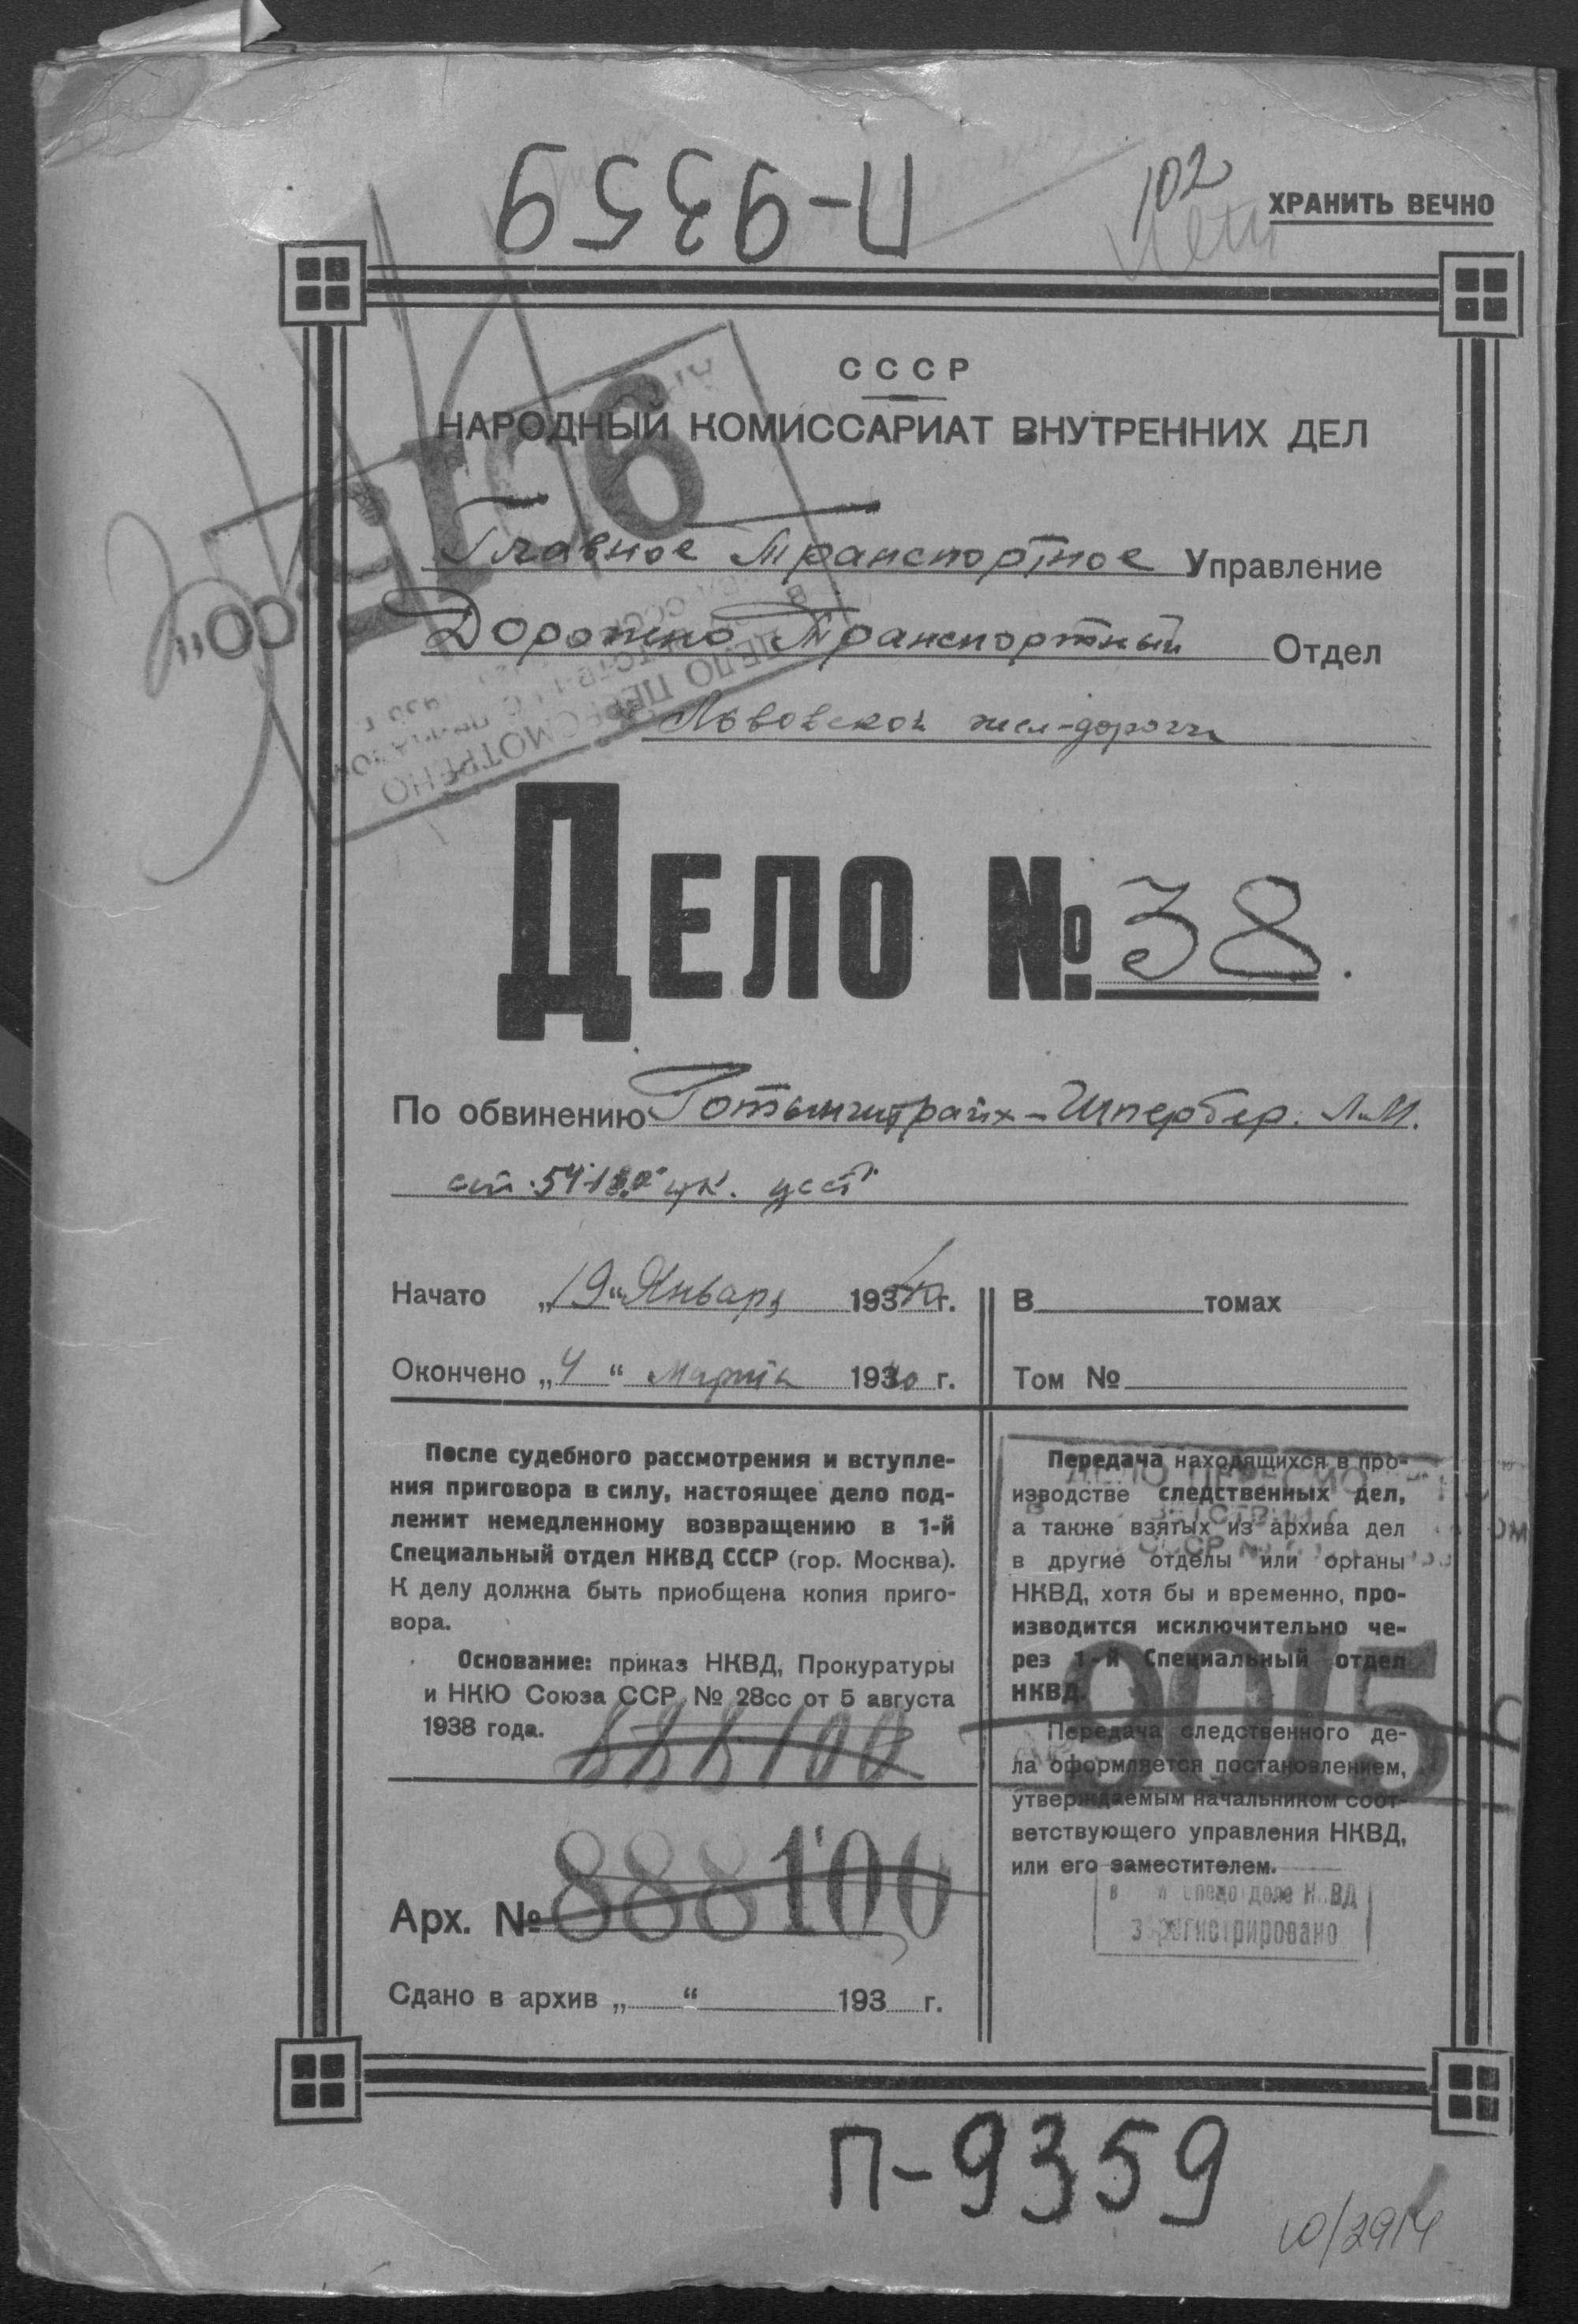 П-9359
102
ХРАНИТЬ ВЕЧНО
СССР
НАРОДНЫЙ КОМИССАРИАТ ВНУТРЕННИХ ДЕЛ
Главное Транспортное Управление
Дорожно Транспортный Отдел
Львовской жел-дороги
9015
"ОС"
ДЕЛО ПЕРЕСМОТРЕНО
ДЕЛО № 38.
По обвинению Готынштрайх-Шпербер. Л.М.
ст.
Начато „19“ Январь 1940 г.
Окончено „4“ марта 1940 г.
В томах
Том №
После судебного рассмотрения и вступле-
ния приговора в силу, настоящее дело под-
лежит немедленному возвращению в 1-й
Специальный отдел НКВД СССР (гор. Москва).
К делу должна быть приобщена копия приго-
вора.
Основание: приказ НКВД, Прокуратуры
и НКЮ Союза ССР № 28сс от 5 августа
1938 года.
888100
Арх. № 888100
Сдано в архив „ “ 193 г.
Передача находящихся в про-
изводстве следственных дел,
а также взятых из архива дел
в другие отделы или органы
НКВД, хотя бы и временно, про-
изводится исключительно че-
рез 1-й Специальный отдел
НКВД.
Передача следственного де-
ла оформляется постановлением,
утверждаемым начальником соот-
ветствующего управления НКВД,
или его заместителем.
9015
зарегистрировано
П-9359